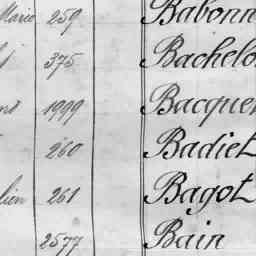 Marie 259 Babonn
375 Bachelo
1999 Bacquer
260 Badiet
lien 261 Bagot
2577 Bain